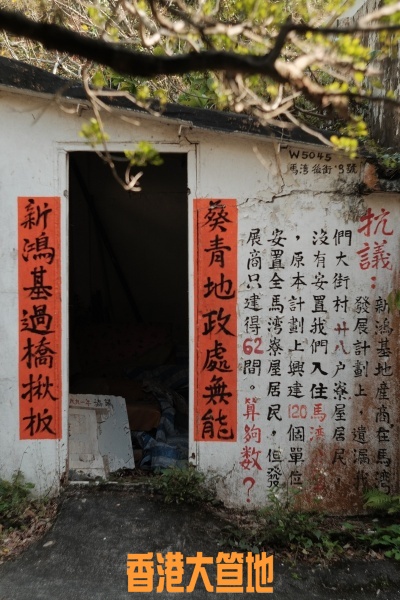 W5045
抗議：
新鴻基地產商在馬灣
發展計劃上，遺漏
們大街村廿八户寮屋居民
沒有安置我們入住馬灣
，原本計劃上興建120個單位
安置全馬灣寮屋居民，但發
展商只建得62間。算夠數？
葵青地政處無能
新鴻基過橋揪板
香港大笪地